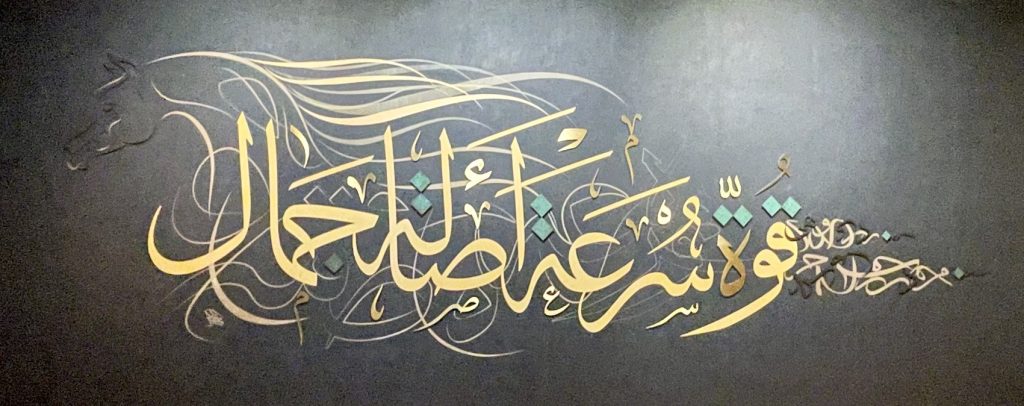 قُوَّة سُرعَة أصَالة جمَال